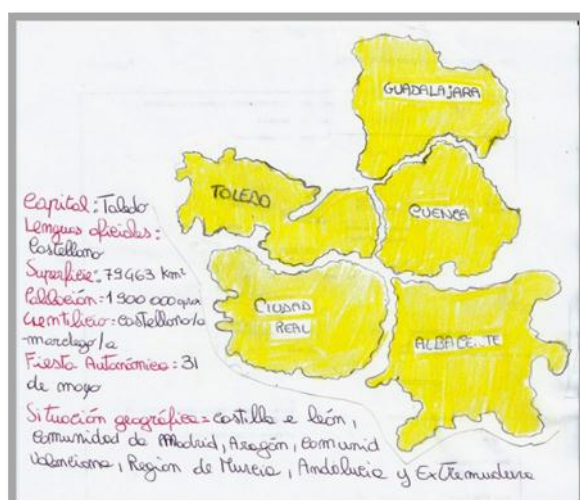 GUADALAJARA
TOLEDO
CUENCA
CIUDAD
REAL
ALBACETE
Capital: Toledo
Lenguas oficiales:
Castellano
Superficie: 79463 km²
Población: 1900 000
Gentilicio: castellano/a
-manchego/a
Fiesta Autonómica: 31
de mayo
Situación geográfica: Castilla e león,
comunidad de Madrid, Aragón, comunid
valenciana, Región de Murcia, Andalucia y Extremadura